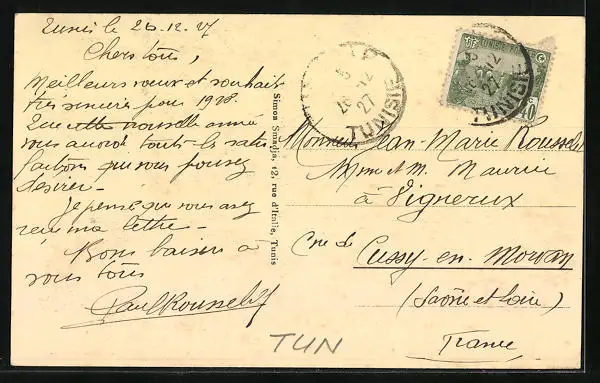 Tunis le 26.12.27
Chers tous,
Meilleurs voeux et souhaits
très sincères pour 1928.
Que cette nouvelle année
vous accorde toutes les satis
factions que vous pouvez
désirer -
Je pense que vous avez
reçu ma lettre -
Bons baisers à
vous tous
Paul Rousselet
Simon Smadja, 12, rue d'Italie, Tunis
TUNISIE
26 12
27
TUNISIE
26 12
27
TUNISIE
20
Monsieur Jean-Marie Rousselet
Mme et M. Maurice
à Vignereux
Cne de Cussy-en-Morvan
(Saône et Loire)
France
TUN